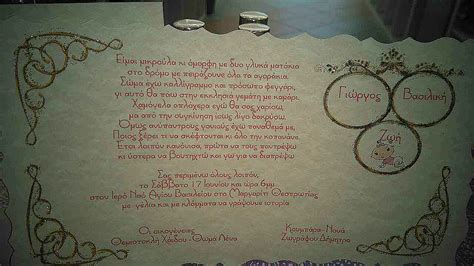 Είμαι μικρούλα κι όμορφη με δυο γλυκά ματάκια
στο δρόμο με πειράζουνε όλα τα αγοράκια.
Σώμα έχω καλλίγραμμο και πρόσωπο φεγγάρι,
γι αυτό θα πάω στην εκκλησιά γεμάτη με καμάρι.
Χαμόγελα απλόχερα εγώ θα σας χαρίσω,
μα από την συγκίνηση ίσως λίγο δακρύσω.
Όμως ανύπαντρους γονιούς έχω παναθεμά με,
Ποιος ξέρει τι να σκέφτονται κι όλο την κοπανάνε.
Έτσι λοιπόν κανόνισα, πρώτα να τους παντρέψω
κι ύστερα να βουτηχτώ και γω για να διαπρέψω.
Σας περιμένω όλους λοιπόν,
το Σάββατο 17 Ιουνίου και ώρα 6μμ
στον Ιερό Ναό Αγίου Βασιλείου στο Μαργαρίτι Θεσπρωτίας
με γέλια και με κλάματα να γράψουμε ιστορία
Οι οικογένειες
Θεμιστοκλή Χάιδου - Θωμά Λένα
Κουμπάρα - Νονά
Ζωγράφου Δήμητρα
Γιώργος
Βασιλική
Ζωή